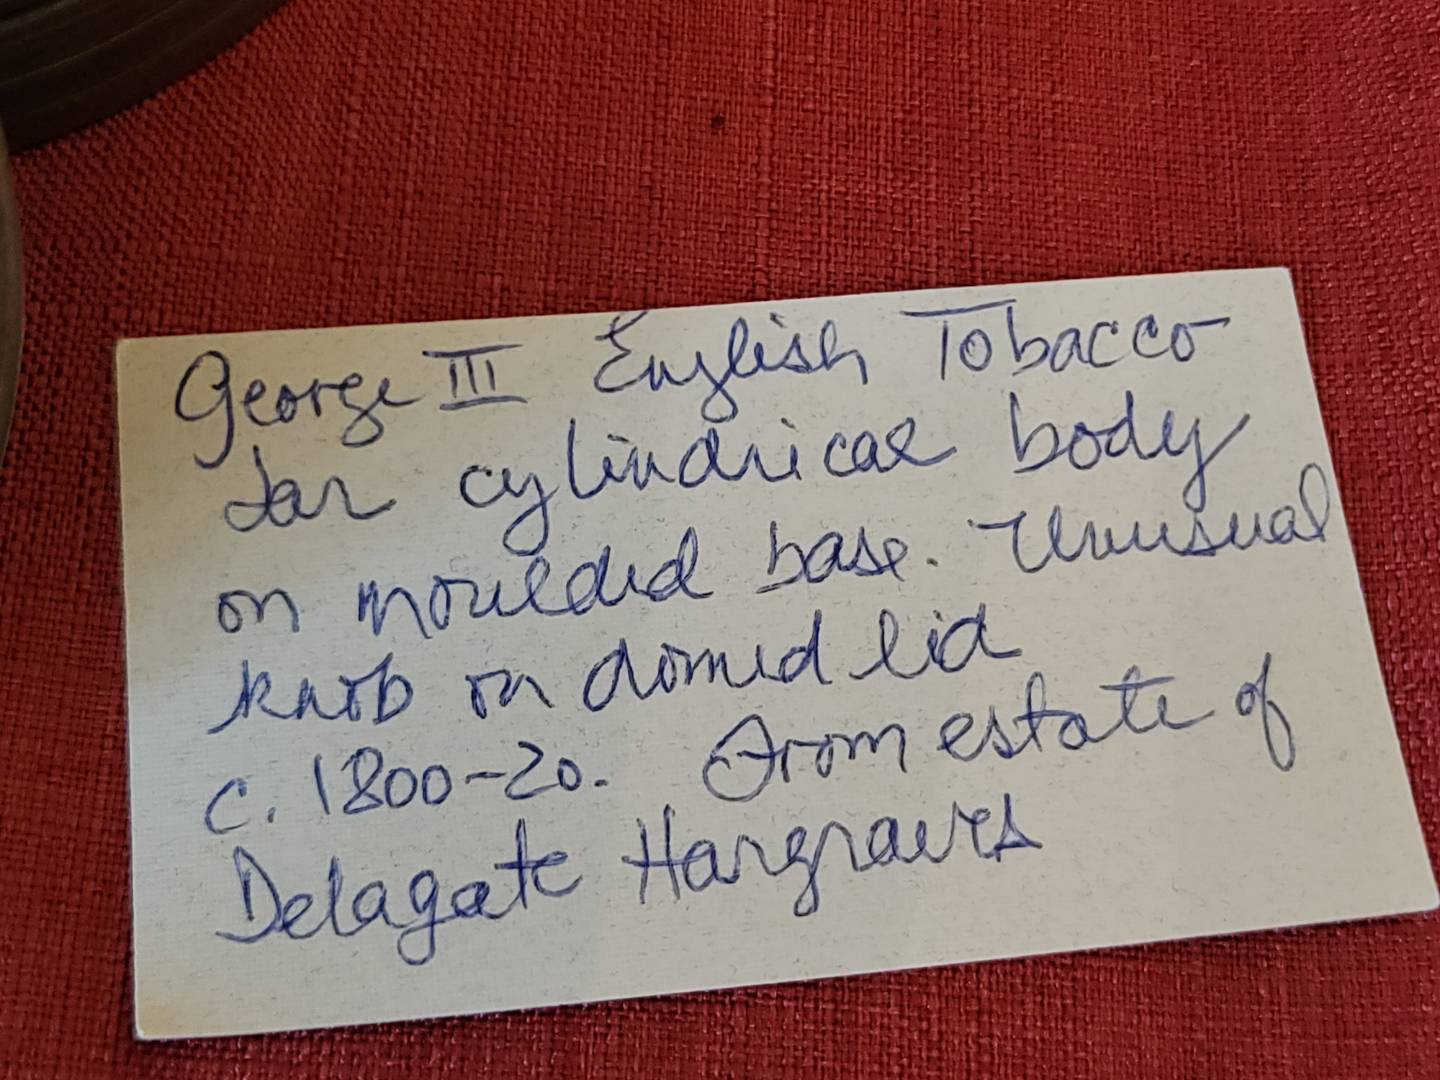 George III English Tobacco
Jar cylindrical body
on moulded base. Unusual
knob on domed lid
c. 1800-20. From estate of
Delagate Hargraves